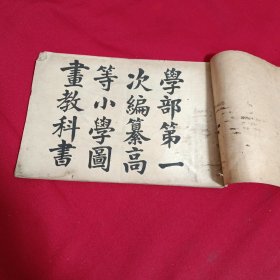 學部第一
次編纂高
等小學圖
畫教科書